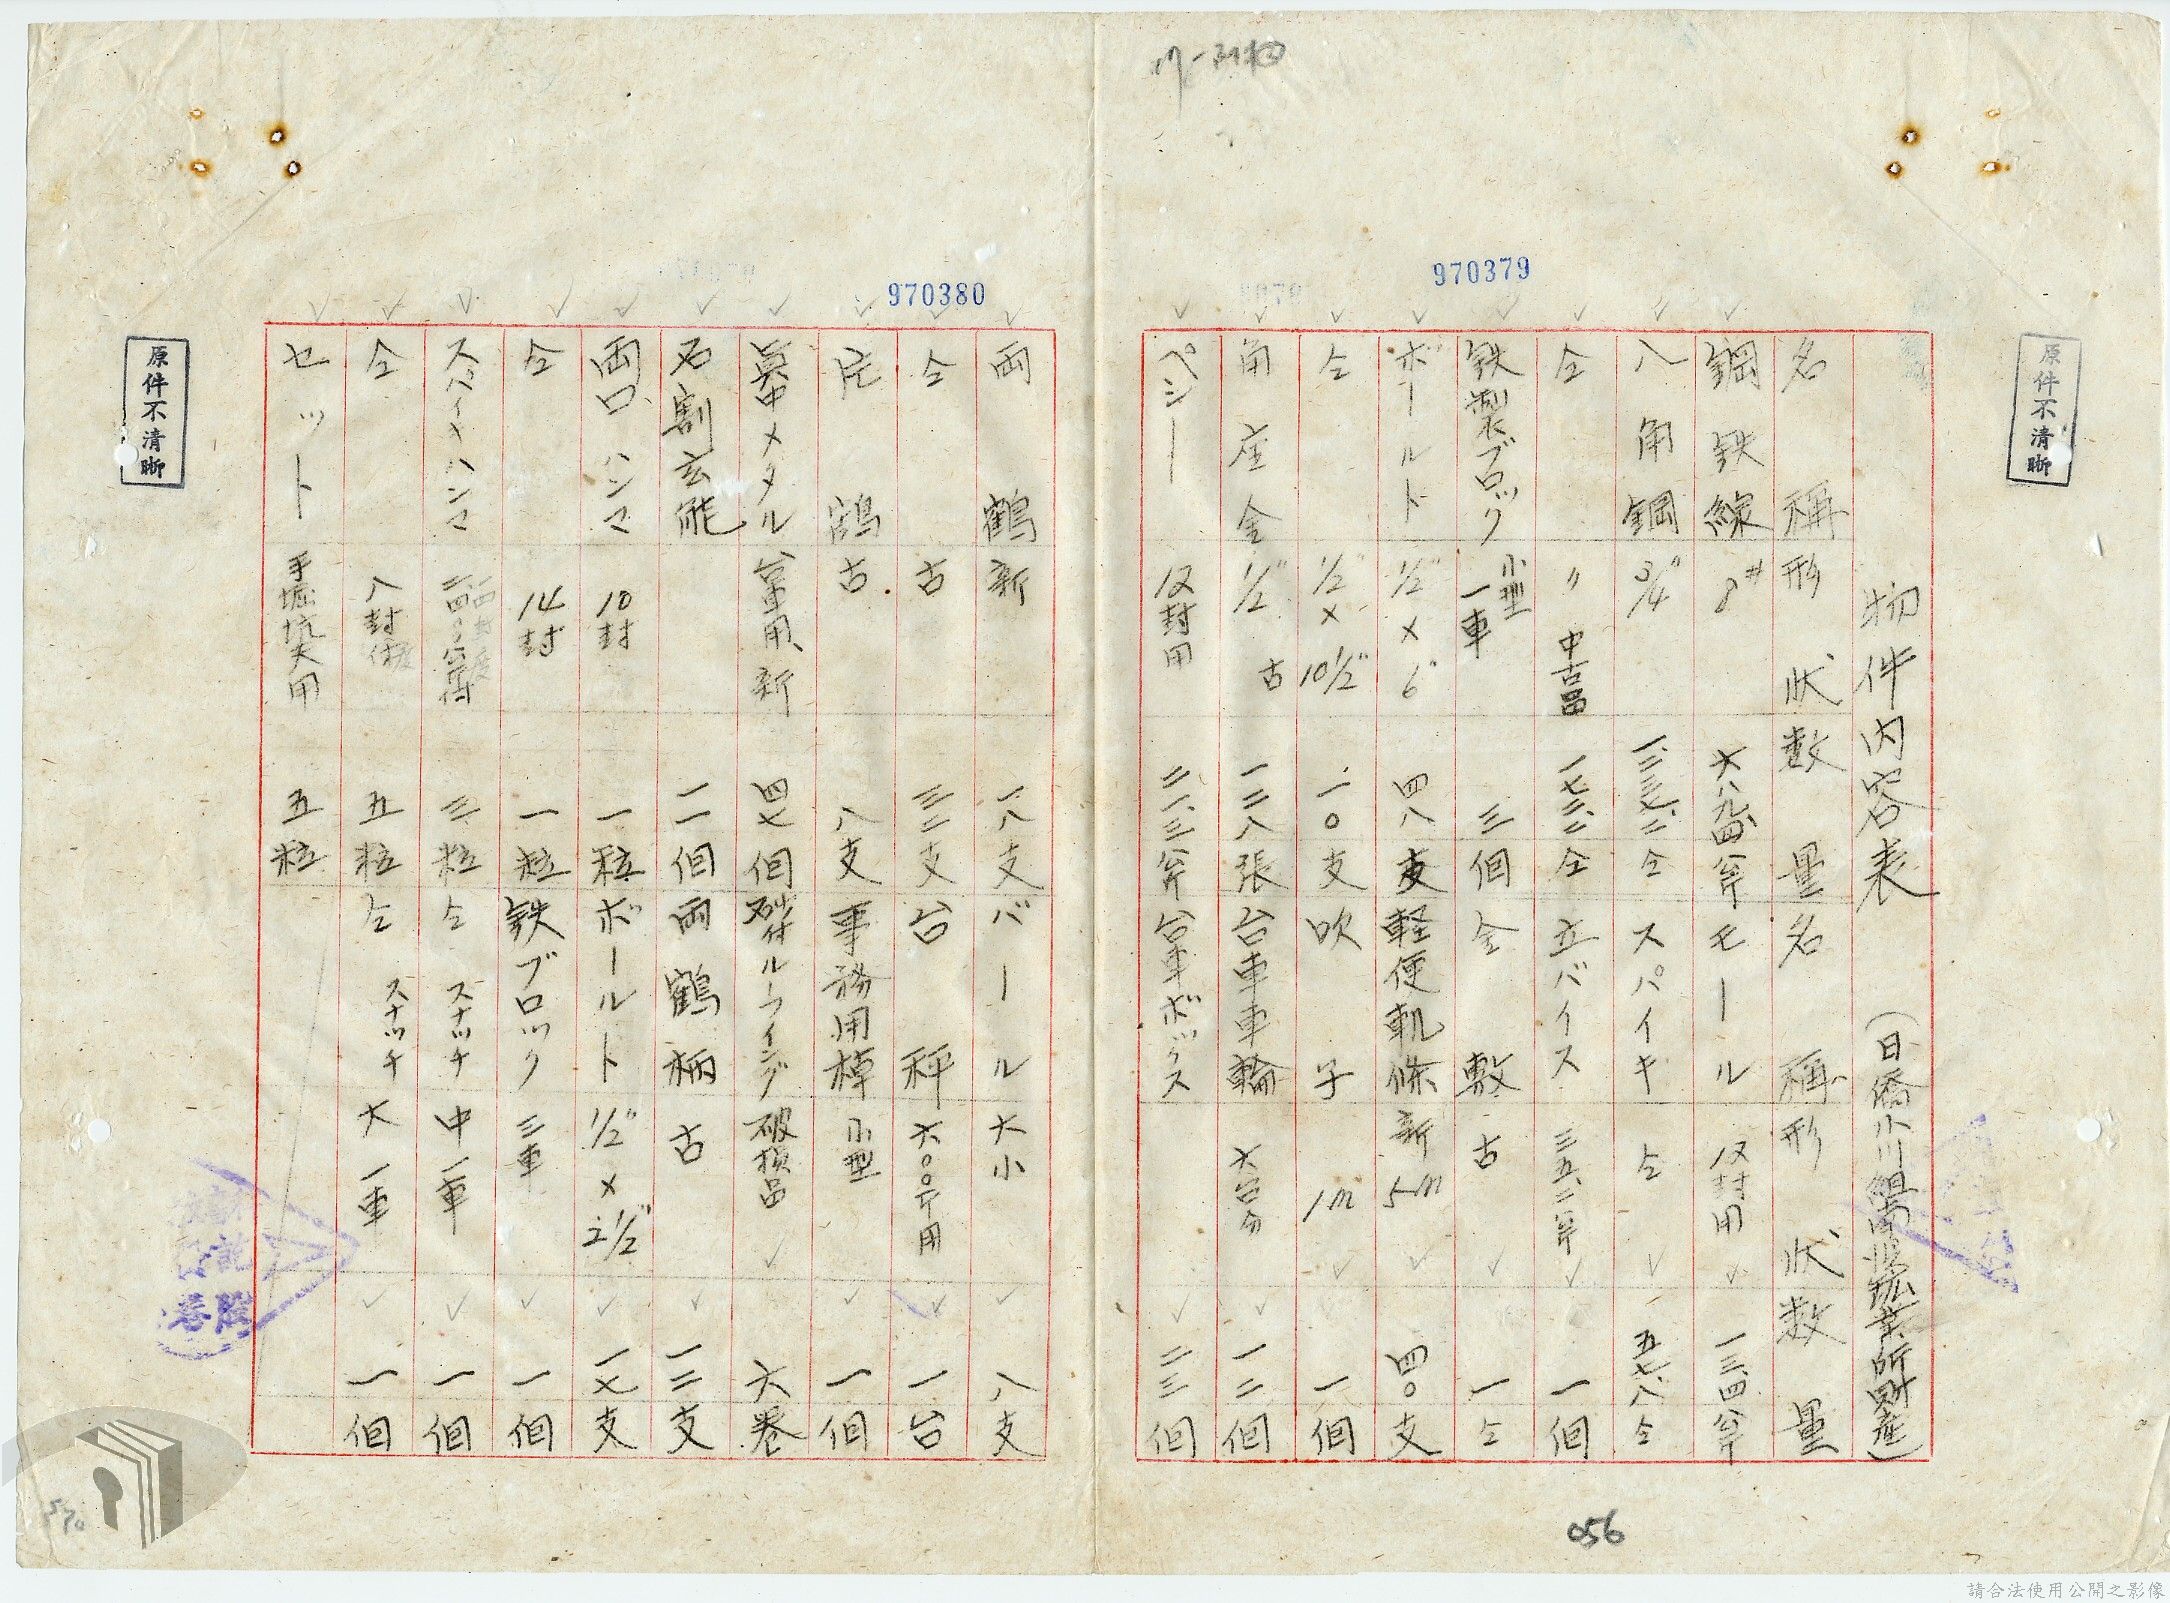 970379
970380
原件不清晰
原件不清晰
物件内容表 (日僑小川組南邦坑業所財産)
名稱 形状 数量 名稱 形状 数量
鋼鉄線 8# 六八九.四公斤 モール 12封用 一三.四公斤
八角鋼 3/4" 一.二三七.二仝 スパイキ 仝 五七.八仝
仝 〃 中古品 一七三.二仝 立バイス 三五.二公斤 一個
鉄製ブロック 小型一車 三個 金敷 古 一仝
ボールト 1/2"×6" 四八支 軽便軌條 新 5m 四〇支
仝 1/2"×10 1/2" 一〇支 吹子 1m 一個
角座金 1/2" 古 一二八張 台車車輪 六台分 一二個
ペシー 12封用 二一.三公斤 台車ボックス 二三個
両鶴 新 一八支 バール 大小 八支
仝 古 三二支 台秤 六〇〇斤用 一台
片鶴 古 八支 事務用棹 小型 一個
真中メタル 台車用、新 四七個 砂付ルーフイング 破損品 六巻
石割玄能 二個 両鶴柄 古 一三支
両口ハンマ 10封 一粒 ボールト 1/2"×2 1/2" 一七支
仝 14封 一粒 鉄ブロック 三車 一個
スパイキハンマ 三粒 仝 スナッチ 中一車 一個
仝 八封 五粒 仝 スナッチ 大一車 一個
セット 手堀坑夫用 五粒
056
570
請合法使用公開之影像